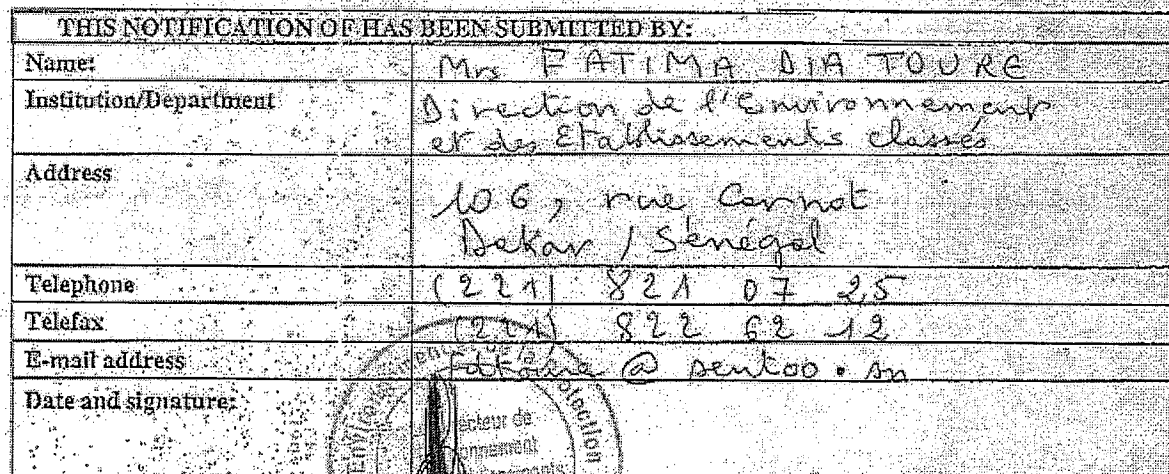 THIS NOTIFICATION OF HAS BEEN SUBMITTED BY:
Name: Mrs FATIMA DIA TOURE
Institution/Department Direction de l'Environnement
et des Etablissements classés
Address
106, rue Carnot
Dakar / Sénégal
Telephone (221) 821 07 25
Telefax (221) 822 62 12
E-mail address @ sentoo.sn
Date and signature:
Protection